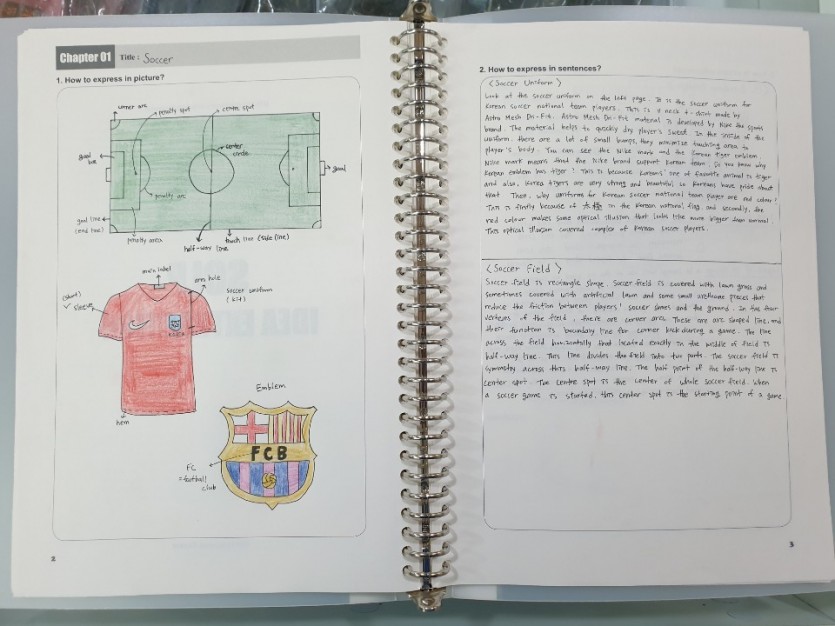 Chapter 01 Title : Soccer
1. How to express in picture?
corner arc
penalty spot
centre spot
goal box
center circle
goal
penalty arc
goal line
(end line)
penalty area
half-way line
touch line (side line)
men's label
arm hole
(short)
sleeve
soccer uniform
(kit)
KOREA
hem
Emblem
FCB
FC
= football
club
2
2. How to express in sentences?
<Soccer Uniform>
Look at the soccer uniform on the left page. It is the soccer uniform for
Korean soccer national team players. This is V neck t-shirt made by
Astro Mesh Dri-Fit. Astro Mesh Dri-Fit material is developed by Nike the sports
brand. The material helps to quickly dry player's sweat. In the inside of the
uniform, there are a lot of small bumps, they minimize touching area to
player's body. You can see the Nike mark and the Korean tiger emblem.
Nike mark means that the Nike brand support Korean team. Do you know why
Korean emblem has tiger? This is because Koreans' one of favorite animal is tiger
and also, Korea tigers are very strong and beautiful so Koreans have pride about
that. Then, why uniforms for Korean soccer national team player are red colour?
This is firstly because of 太極 in the Korean national flag, and secondly, the
red colour makes some optical illusion that looks like more bigger than normal.
This optical illusion covered complex of Korean soccer players.
<Soccer Field>
Soccer field is rectangle shape. Soccer field is covered with lawn grass and
sometimes covered with artificial lawn and some small urethane pieces that
reduce the friction between players' soccer shoes and the ground. In the four
vertexes of the field, there are corner arcs. These arc are shaped line, and
their function is boundary line for corner kick during a game. The line
across the field horizontally that located exactly in the middle of field is
half-way line. This line divides the field into two parts. The soccer field is
symmetry across this half-way line. The half point of the half-way line is
center spot. The centre spot is the center of whole soccer field. When
a soccer game is started, this center spot is the starting point of a game
3